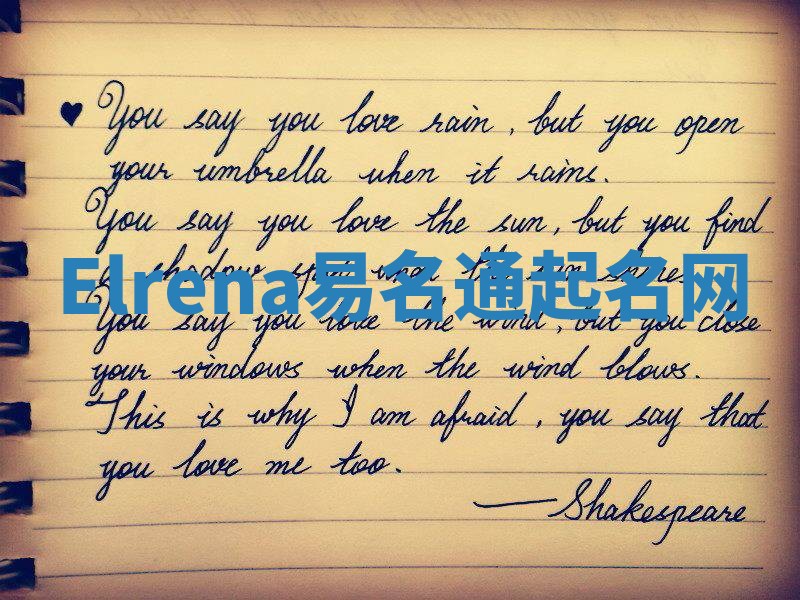 ♥ You say you love rain, but you open
your umbrella when it rains.
You say you love the sun, but you find
a shadow spot when the sun shines.
Elrena易名通起名网
You say you love the wind, but you close
your windows when the wind blows.
This is why I am afraid, you say that
you love me too.
—Shakespeare